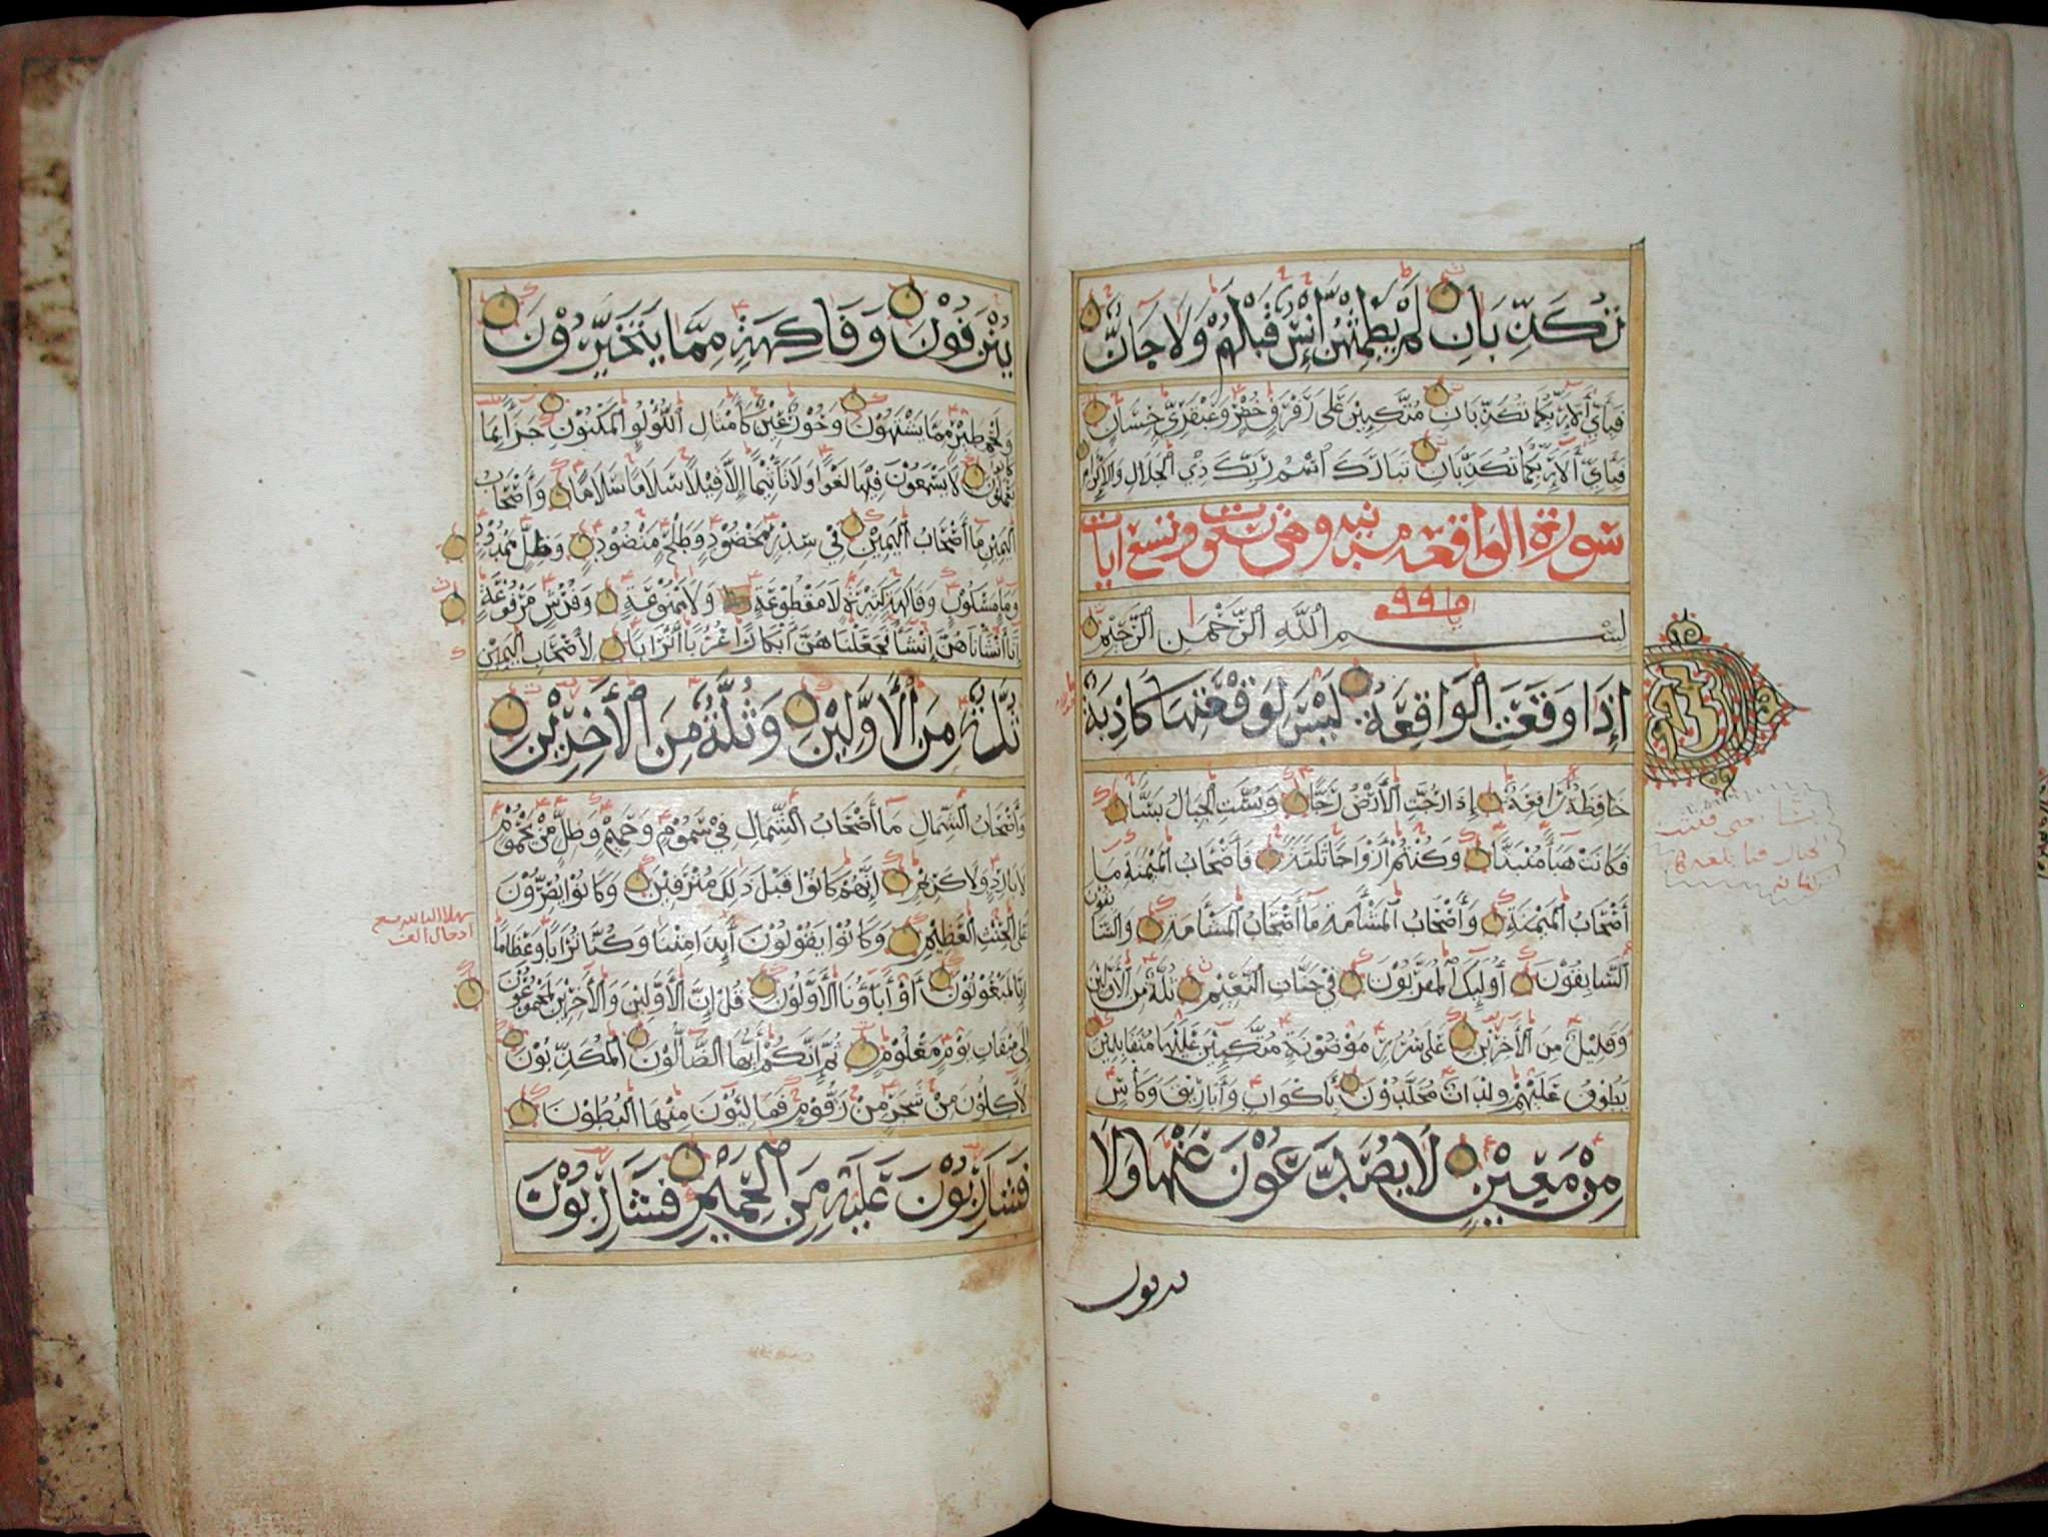 تُكَذِّبَانِ لَمْ يَطْمِثْهُنَّ إِنْسٌ قَبْلَهُمْ وَلَا جَانٌّ
فَبِأَيِّ آلَاءِ رَبِّكُمَا تُكَذِّبَانِ مُتَّكِئِينَ عَلَى رَفْرَفٍ خُضْرٍ وَعَبْقَرِيٍّ حِسَانٍ
فَبِأَيِّ آلَاءِ رَبِّكُمَا تُكَذِّبَانِ تَبَارَكَ اسْمُ رَبِّكَ ذِي الْجَلَالِ وَالْإِكْرَامِ
سورة الواقعة وتسع ايات
٩٩
بِسْمِ اللَّهِ الرَّحْمَنِ الرَّحِيمِ
إِذَا وَقَعَتِ الْوَاقِعَةُ لَيْسَ لِوَقْعَتِهَا كَاذِبَةٌ
خَافِضَةٌ رَافِعَةٌ إِذَا رُجَّتِ الْأَرْضُ رَجًّا وَبُسَّتِ الْجِبَالُ بَسًّا
فَكَانَتْ هَبَاءً مُنْبَثًّا وَكُنْتُمْ أَزْوَاجًا ثَلَاثَةً فَأَصْحَابُ الْمَيْمَنَةِ مَا
أَصْحَابُ الْمَيْمَنَةِ وَأَصْحَابُ الْمَشْأَمَةِ مَا أَصْحَابُ الْمَشْأَمَةِ وَالسَّابِقُونَ
السَّابِقُونَ أُولَئِكَ الْمُقَرَّبُونَ فِي جَنَّاتِ النَّعِيمِ ثُلَّةٌ مِنَ الْأَوَّلِينَ
وَقَلِيلٌ مِنَ الْآخِرِينَ عَلَى سُرُرٍ مَوْضُونَةٍ مُتَّكِئِينَ عَلَيْهَا مُتَقَابِلِينَ
يَطُوفُ عَلَيْهِمْ وِلْدَانٌ مُخَلَّدُونَ بِأَكْوَابٍ وَأَبَارِيقَ وَكَأْسٍ
مِنْ مَعِينٍ لَا يُصَدَّعُونَ عَنْهَا وَلَا
يُنْزِفُونَ وَفَاكِهَةٍ مِمَّا يَتَخَيَّرُونَ
وَلَحْمِ طَيْرٍ مِمَّا يَشْتَهُونَ وَحُورٌ عِينٌ كَأَمْثَالِ اللُّؤْلُؤِ الْمَكْنُونِ جَزَاءً بِمَا
كَانُوا يَعْمَلُونَ لَا يَسْمَعُونَ فِيهَا لَغْوًا وَلَا تَأْثِيمًا إِلَّا قِيلًا سَلَامًا سَلَامًا وَأَصْحَابُ
الْيَمِينِ مَا أَصْحَابُ الْيَمِينِ فِي سِدْرٍ مَخْضُودٍ وَطَلْحٍ مَنْضُودٍ وَظِلٍّ مَمْدُودٍ
وَمَاءٍ مَسْكُوبٍ وَفَاكِهَةٍ كَثِيرَةٍ لَا مَقْطُوعَةٍ وَلَا مَمْنُوعَةٍ وَفُرُشٍ مَرْفُوعَةٍ
إِنَّا أَنْشَأْنَاهُنَّ إِنْشَاءً فَجَعَلْنَاهُنَّ أَبْكَارًا عُرُبًا أَتْرَابًا لِأَصْحَابِ الْيَمِينِ
ثُلَّةٌ مِنَ الْأَوَّلِينَ وَثُلَّةٌ مِنَ الْآخِرِينَ
وَأَصْحَابُ الشِّمَالِ مَا أَصْحَابُ الشِّمَالِ فِي سَمُومٍ وَحَمِيمٍ وَظِلٍّ مِنْ يَحْمُومٍ
لَا بَارِدٍ وَلَا كَرِيمٍ إِنَّهُمْ كَانُوا قَبْلَ ذَلِكَ مُتْرَفِينَ وَكَانُوا يُصِرُّونَ
عَلَى الْحِنْثِ الْعَظِيمِ وَكَانُوا يَقُولُونَ أَئِذَا مِتْنَا وَكُنَّا تُرَابًا وَعِظَامًا
إِنَّا لَمَبْعُوثُونَ أَوَآبَاؤُنَا الْأَوَّلُونَ قُلْ إِنَّ الْأَوَّلِينَ وَالْآخِرِينَ لَمَجْمُوعُونَ
إِلَى مِيقَاتِ يَوْمٍ مَعْلُومٍ ثُمَّ إِنَّكُمْ أَيُّهَا الضَّالُّونَ الْمُكَذِّبُونَ
لَآكِلُونَ مِنْ شَجَرٍ مِنْ زَقُّومٍ فَمَالِئُونَ مِنْهَا الْبُطُونَ
فَشَارِبُونَ عَلَيْهِ مِنَ الْحَمِيمِ فَشَارِبُونَ